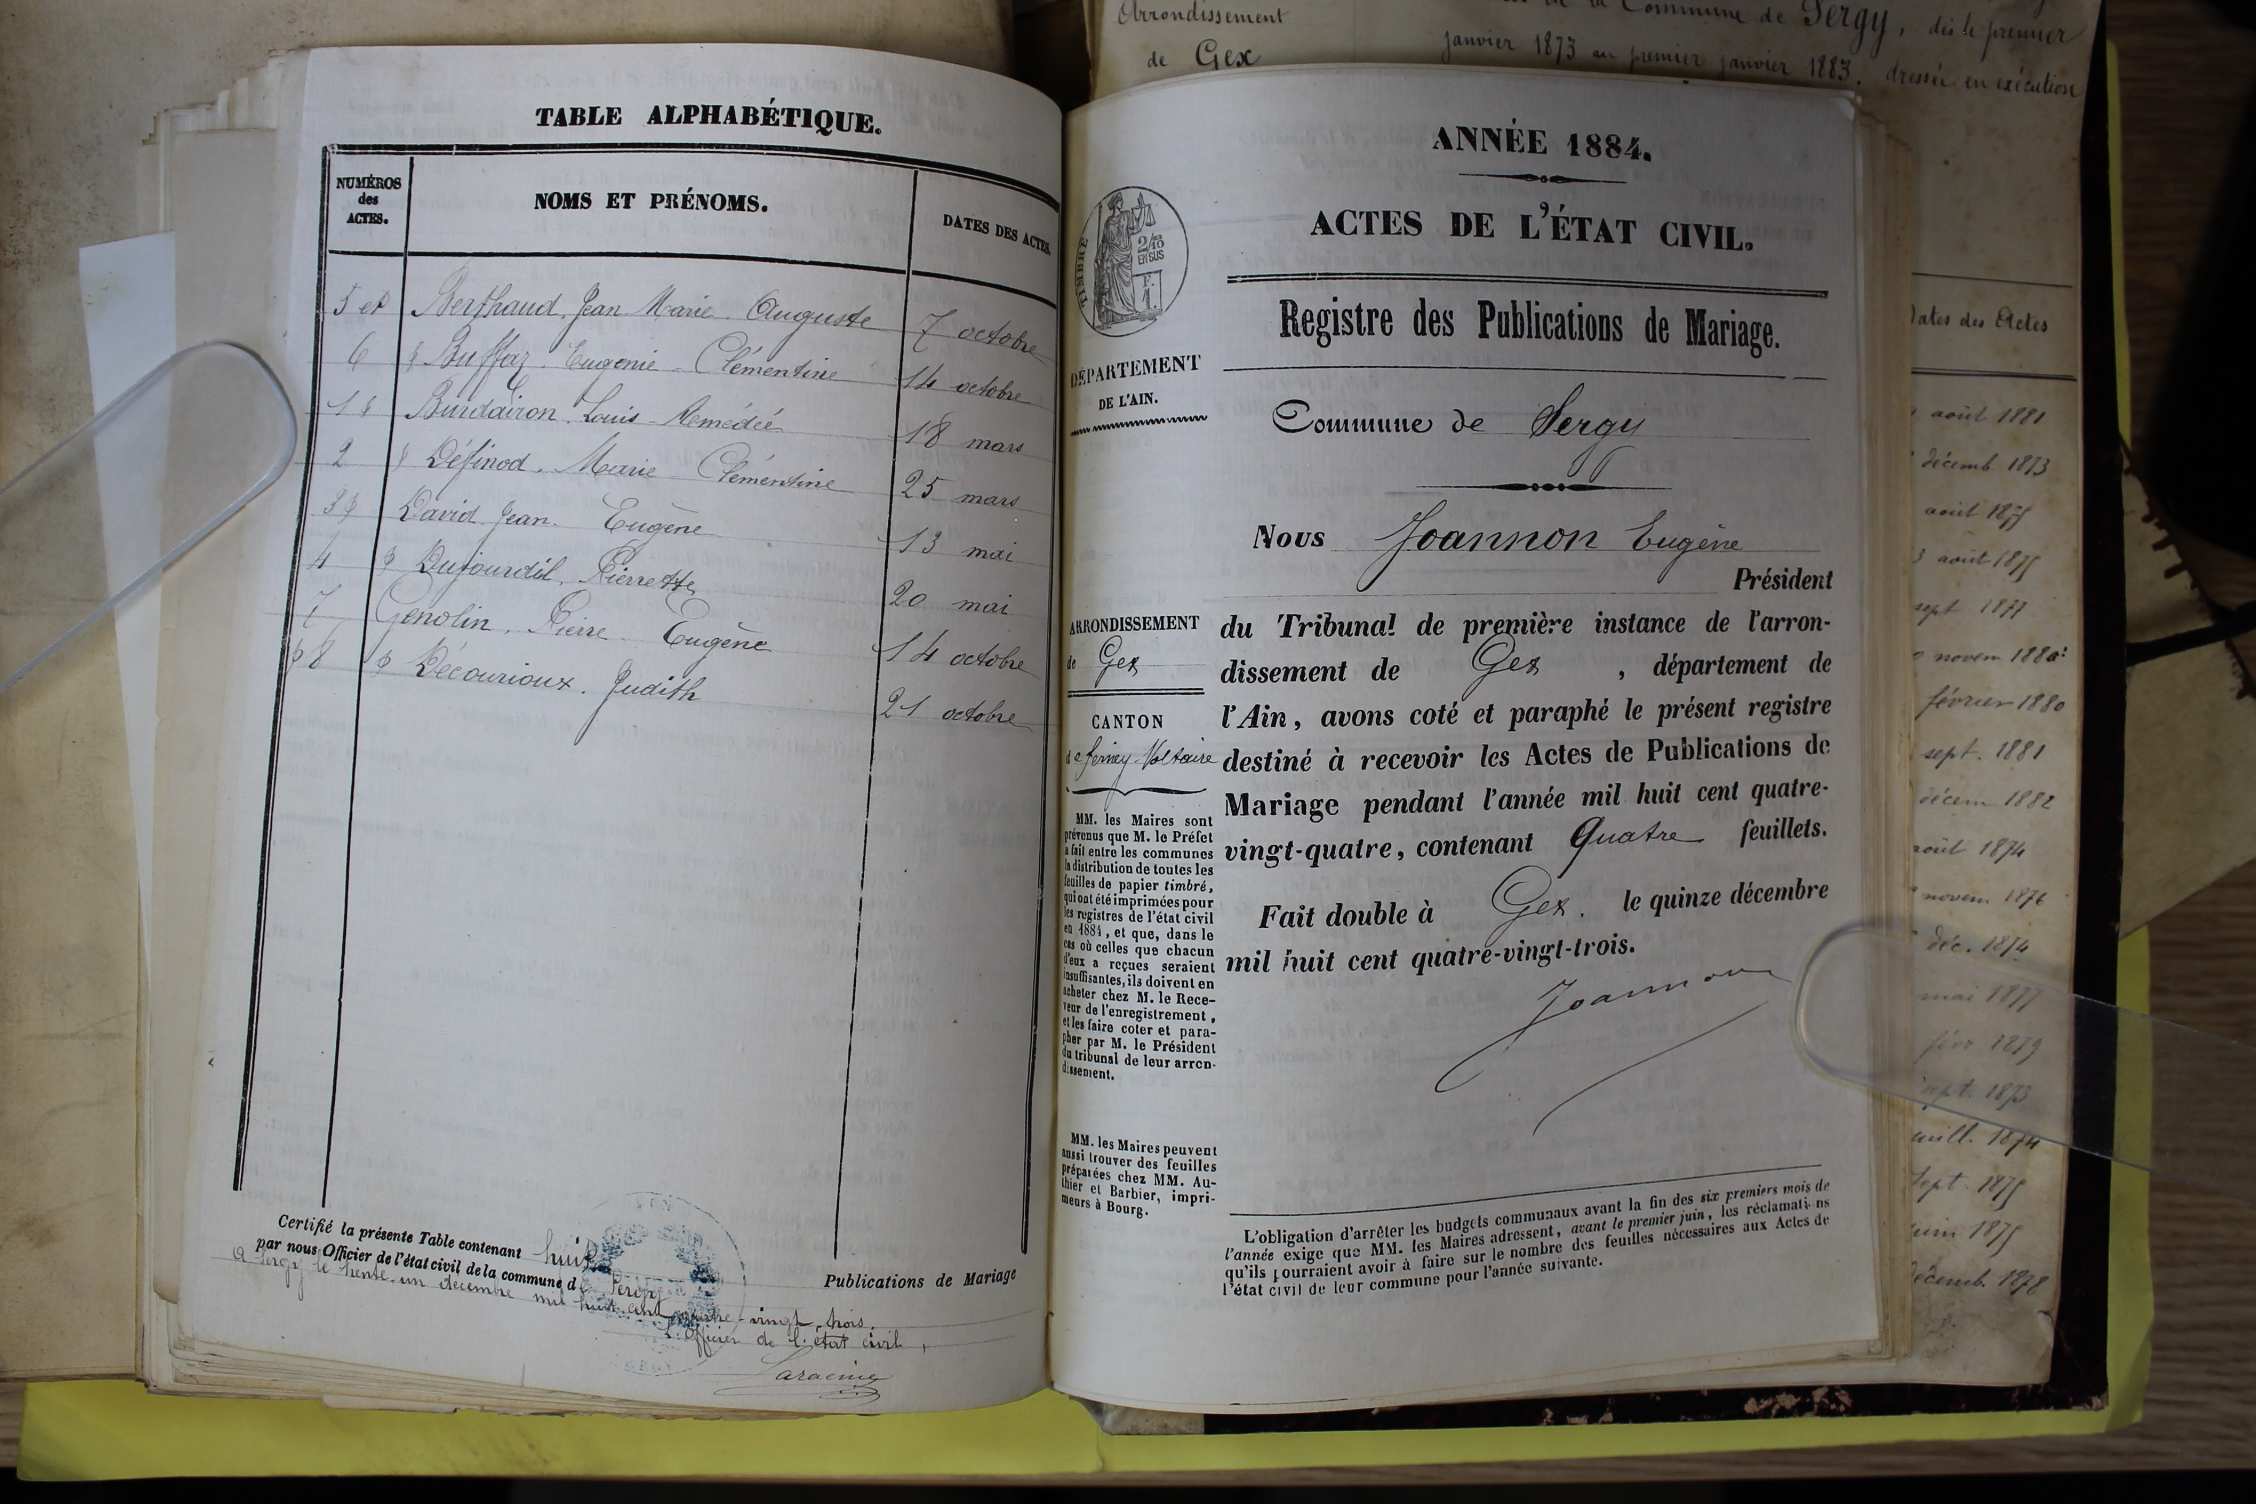 TABLE ALPHABÉTIQUE.
NUMÉROS
des
ACTES.
NOMS ET PRÉNOMS.
DATES DES ACTES.
5 et Berthaud, Jean Marie Auguste 7 octobre
6 Buffaz, Eugénie Clémentine 14 octobre
1 Burdairon, Louis 18 mars
2 Définod, Marie Clémentine 25 mars
3 David Jean Eugène 13 mai
4 Pierrette 20 mai
7 Genolin, Pierre Eugène 14 octobre
8 Décourioux, Judith 21 octobre
Certifié la présente Table contenant huit
par nous Officier de l'état civil de la commune de Sergy
A Sergy le trente-un décembre mil huit cent quatre-vingt-trois.
L'officier de l'état civil,
Publications de Mariage
Arrondissement
de Gex
de la Commune de Sergy, dès le premier
janvier 1873 au premier janvier 1883, dressée en exécution
ANNÉE 1884.
ACTES DE L'ÉTAT CIVIL.
TIMBRE
2/10
EN SUS
F.
1.
Registre des Publications de Mariage.
DÉPARTEMENT
DE L'AIN.
Commune de Sergy
Nous Joannon Eugène
Président
ARRONDISSEMENT
de Gex
CANTON
de Ferney-Voltaire
du Tribunal de première instance de l'arron-
dissement de Gex, département de
l'Ain, avons coté et paraphé le présent registre
destiné à recevoir les Actes de Publications de
Mariage pendant l'année mil huit cent quatre-
vingt-quatre, contenant Quatre feuillets.
Fait double à Gex. le quinze décembre
mil huit cent quatre-vingt-trois.
Joannon
MM. les Maires sont
prévenus que M. le Préfet
a fait entre les communes
la distribution de toutes les
feuilles de papier timbré,
qui ont été imprimées pour
les registres de l'état civil
en 1884, et que, dans le
cas où celles que chacun
d'eux a reçues seraient
insuffisantes, ils doivent en
acheter chez M. le Rece-
veur de l'enregistrement,
et les faire coter et para-
pher par M. le Président
du tribunal de leur arron-
dissement.
MM. les Maires peuvent
aussi trouver des feuilles
préparées chez MM. Au-
thier et Barbier, impri-
meurs à Bourg.
L'obligation d'arrêter les budgets communaux avant la fin des six premiers mois de
l'année exige que MM. les Maires adressent, avant le premier juin, les réclamations
qu'ils pourraient avoir à faire sur le nombre des feuilles nécessaires aux Actes de
l'état civil de leur commune pour l'année suivante.
Dates des Actes
août 1881
décemb. 1873
août 1875
août 1875
sept 1877
novem 1880
février 1880
sept. 1881
décem 1882
août 1874
novem. 1876
déc. 1874
mai 1877
févr 1879
sept. 1873
juill. 1874
sept. 1875
juin 1875
décemb. 1878